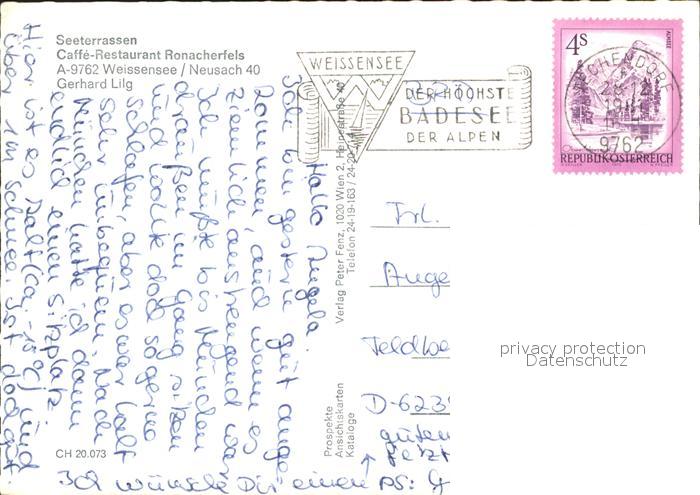 Seeterrassen
Caffé-Restaurant Ronacherfels
A-9762 Weissensee / Neusach 40
Gerhard Lilg
WEISSENSEE
DER HÖCHSTE
BADESEE
DER ALPEN
4S
9762
REPUBLIK ÖSTERREICH
Hallo Angela.
Ich bin gestern gut ange-
kommen, auch wenn es
ziemlich anstrengend war.
Ich mußte bis München
draußen im Gang sitzen
und wollte doch so gerne
schlafen, aber es war halt
sehr unbequem. Nach
München hatte ich dann
endlich einen Sitzplatz.
Hier ist es kalt (ca. -15°C) und
über 1m Schnee. Ist doch gut.
Ich wünsche Dir einen
guten
PS:
Verlag Peter Fenz, 1020 Wien 2, Heinestraße 40
Telefon 24-19-163 / 24-20
Prospekte
Ansichtskarten
Kataloge
Frl.
Ange
Feldbe
D-623
privacy protection
Datenschutz
CH 20.073